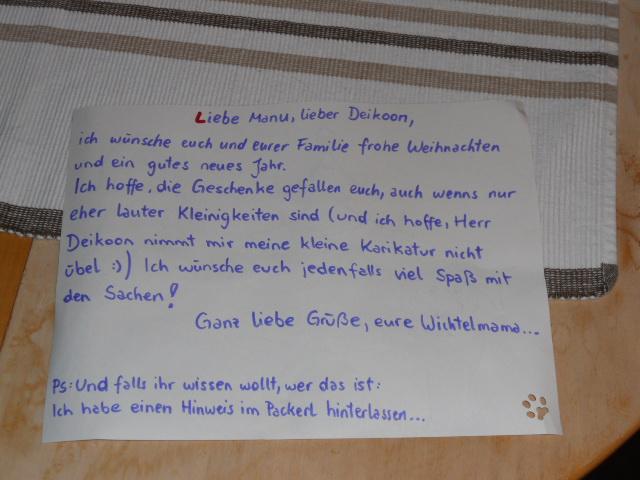 Liebe Manu, lieber Deikoon,
ich wünsche euch und eurer Familie frohe Weihnachten
und ein gutes neues Jahr.
Ich hoffe, die Geschenke gefallen euch, auch wenns nur
eher lauter Kleinigkeiten sind (und ich hoffe, Herr
Deikoon nimmt mir meine kleine Karikatur nicht
übel :)) Ich wünsche euch jedenfalls viel Spaß mit
den Sachen!
Ganz liebe Grüße, eure Wichtelmama...
Ps: Und falls ihr wissen wollt, wer das ist:
Ich habe einen Hinweis im Packerl hinterlassen...